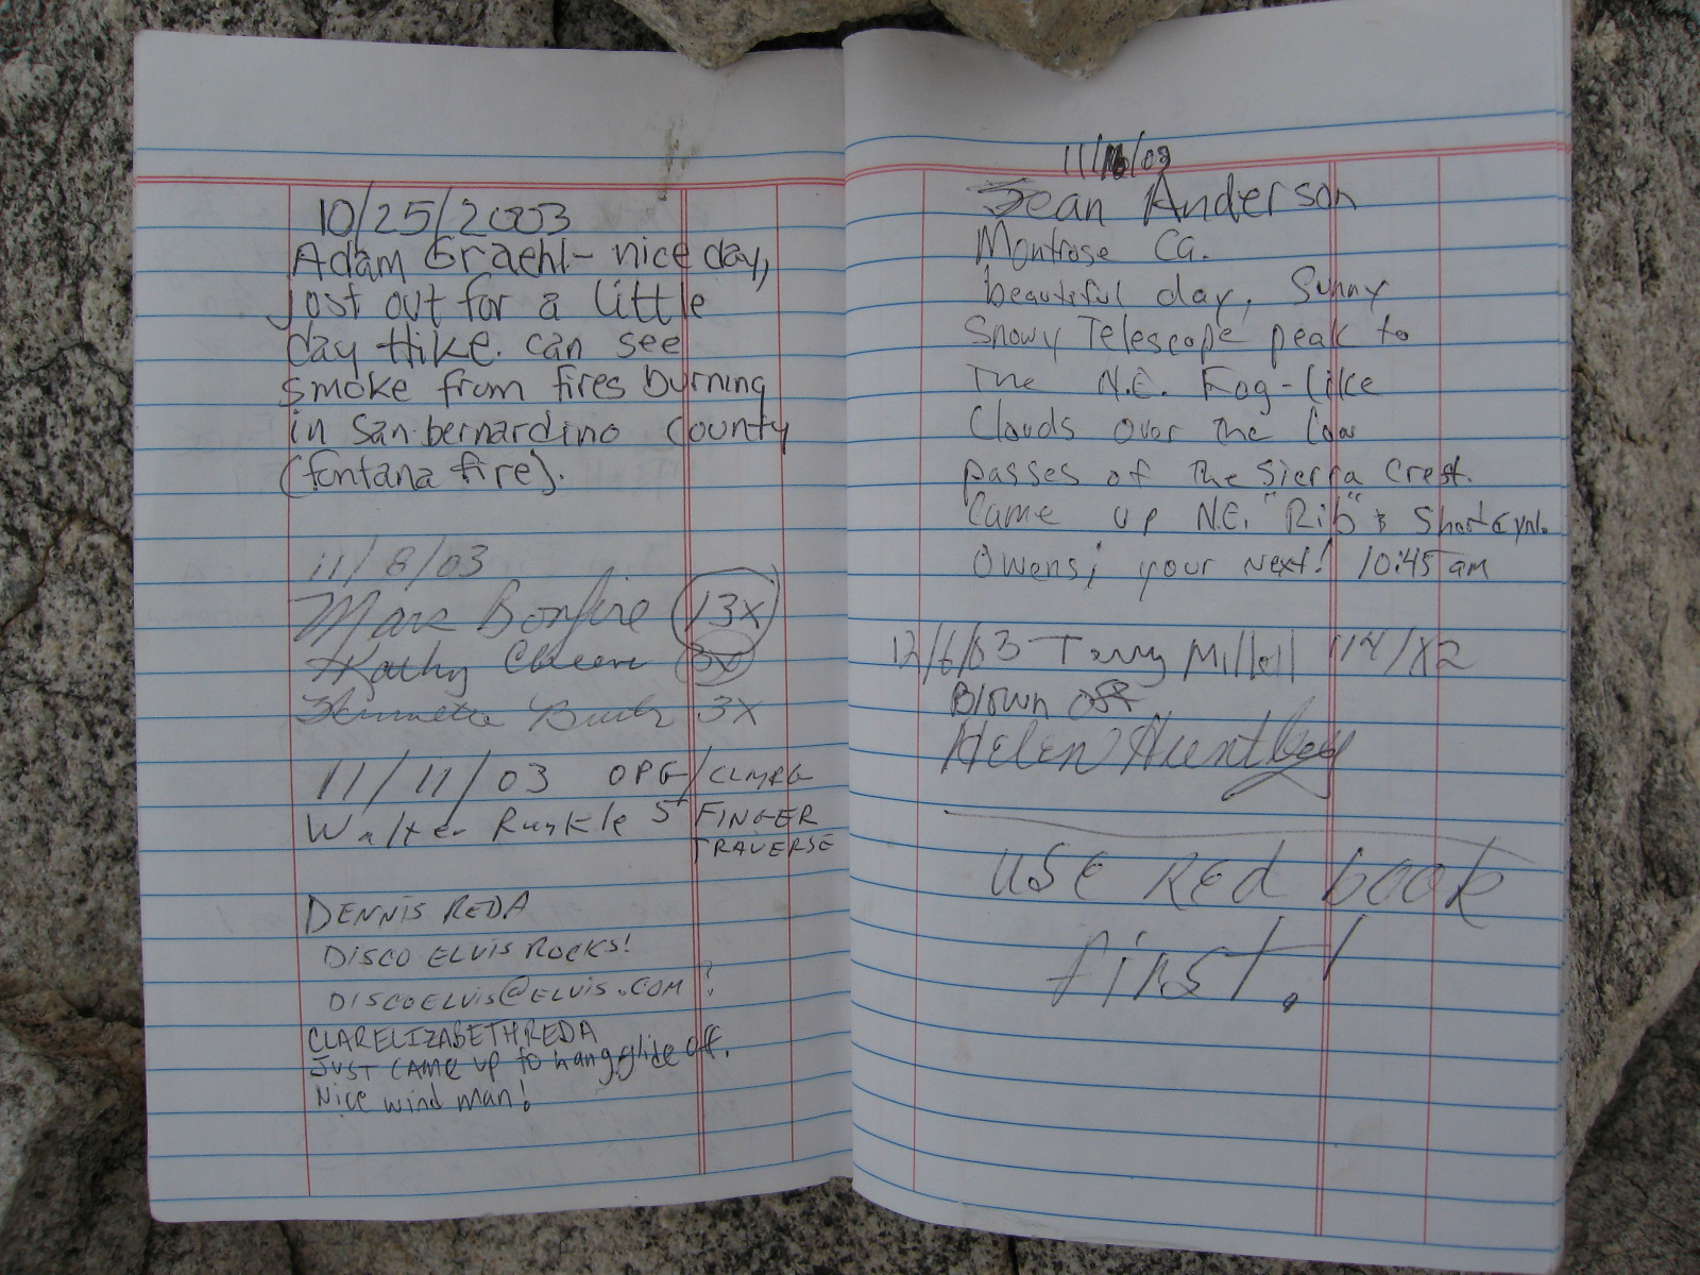 10/25/2003
Adam Graehl - nice day,
Just out for a little
day Hike. can see
smoke from fires burning
in San bernardino county
(fontana fire).
11/8/03
Mars Bonfire 13x
Kathy
3x
11/11/03 OPG/CLMRG
Walter Runkle 5 FINGER
TRAVERSE
DENNIS REDA
DISCO ELVIS ROCKS!
DISCOELVIS@ELVIS.COM ?
CLARELIZABETH REDA
JUST CAME up to hang glide off.
Nice wind man!
11/16/03
Sean Anderson
Montrose CA.
beautiful day, Sunny
Snowy Telescope peak to
The N.E. Fog-like
Clouds over the Low
passes of the Sierra Crest.
Came up N.E. "Rib" &
Owens; your next! 10:45 am
12/6/03 Terry
Blown off
Helen Huntley
USE RED book
first!